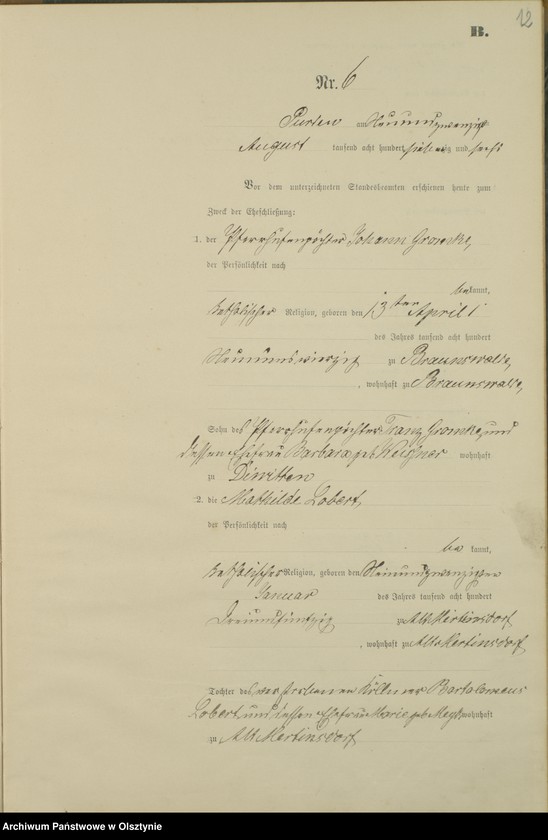 12
B.
Nr. 6
Purden am Neunundzwanzigsten
August tausend acht hundert siebenzig und sechs
Vor dem unterzeichneten Standesbeamten erschienen heute zum
Zweck der Eheschließung:
1. der Pfarrhufenpächter Johann Gromke,
der Persönlichkeit nach
bekannt,
katholischer Religion, geboren den 13ten April
des Jahres tausend acht hundert
Neunundvierzig zu Braunswalde,
, wohnhaft zu Braunswalde,
Sohn des Pfarrhufenpächter Franz Gromke, und
dessen Ehefrau Barbara geb. wohnhaft
zu Diwitten
2. die Mathilde Lobert,
der Persönlichkeit nach
be kannt,
katholischer Religion, geboren den
Januar des Jahres tausend acht hundert
Dreiundfünfzig zu Alt Mertinsdorf
, wohnhaft zu Alt Mertinsdorf,
Tochter des verstorbenen Köllmer Bartolomeus
Lobert und dessen Ehefrau Marie geb. wohnhaft
zu Alt Mertinsdorf
Archiwum Państwowe w Olsztynie